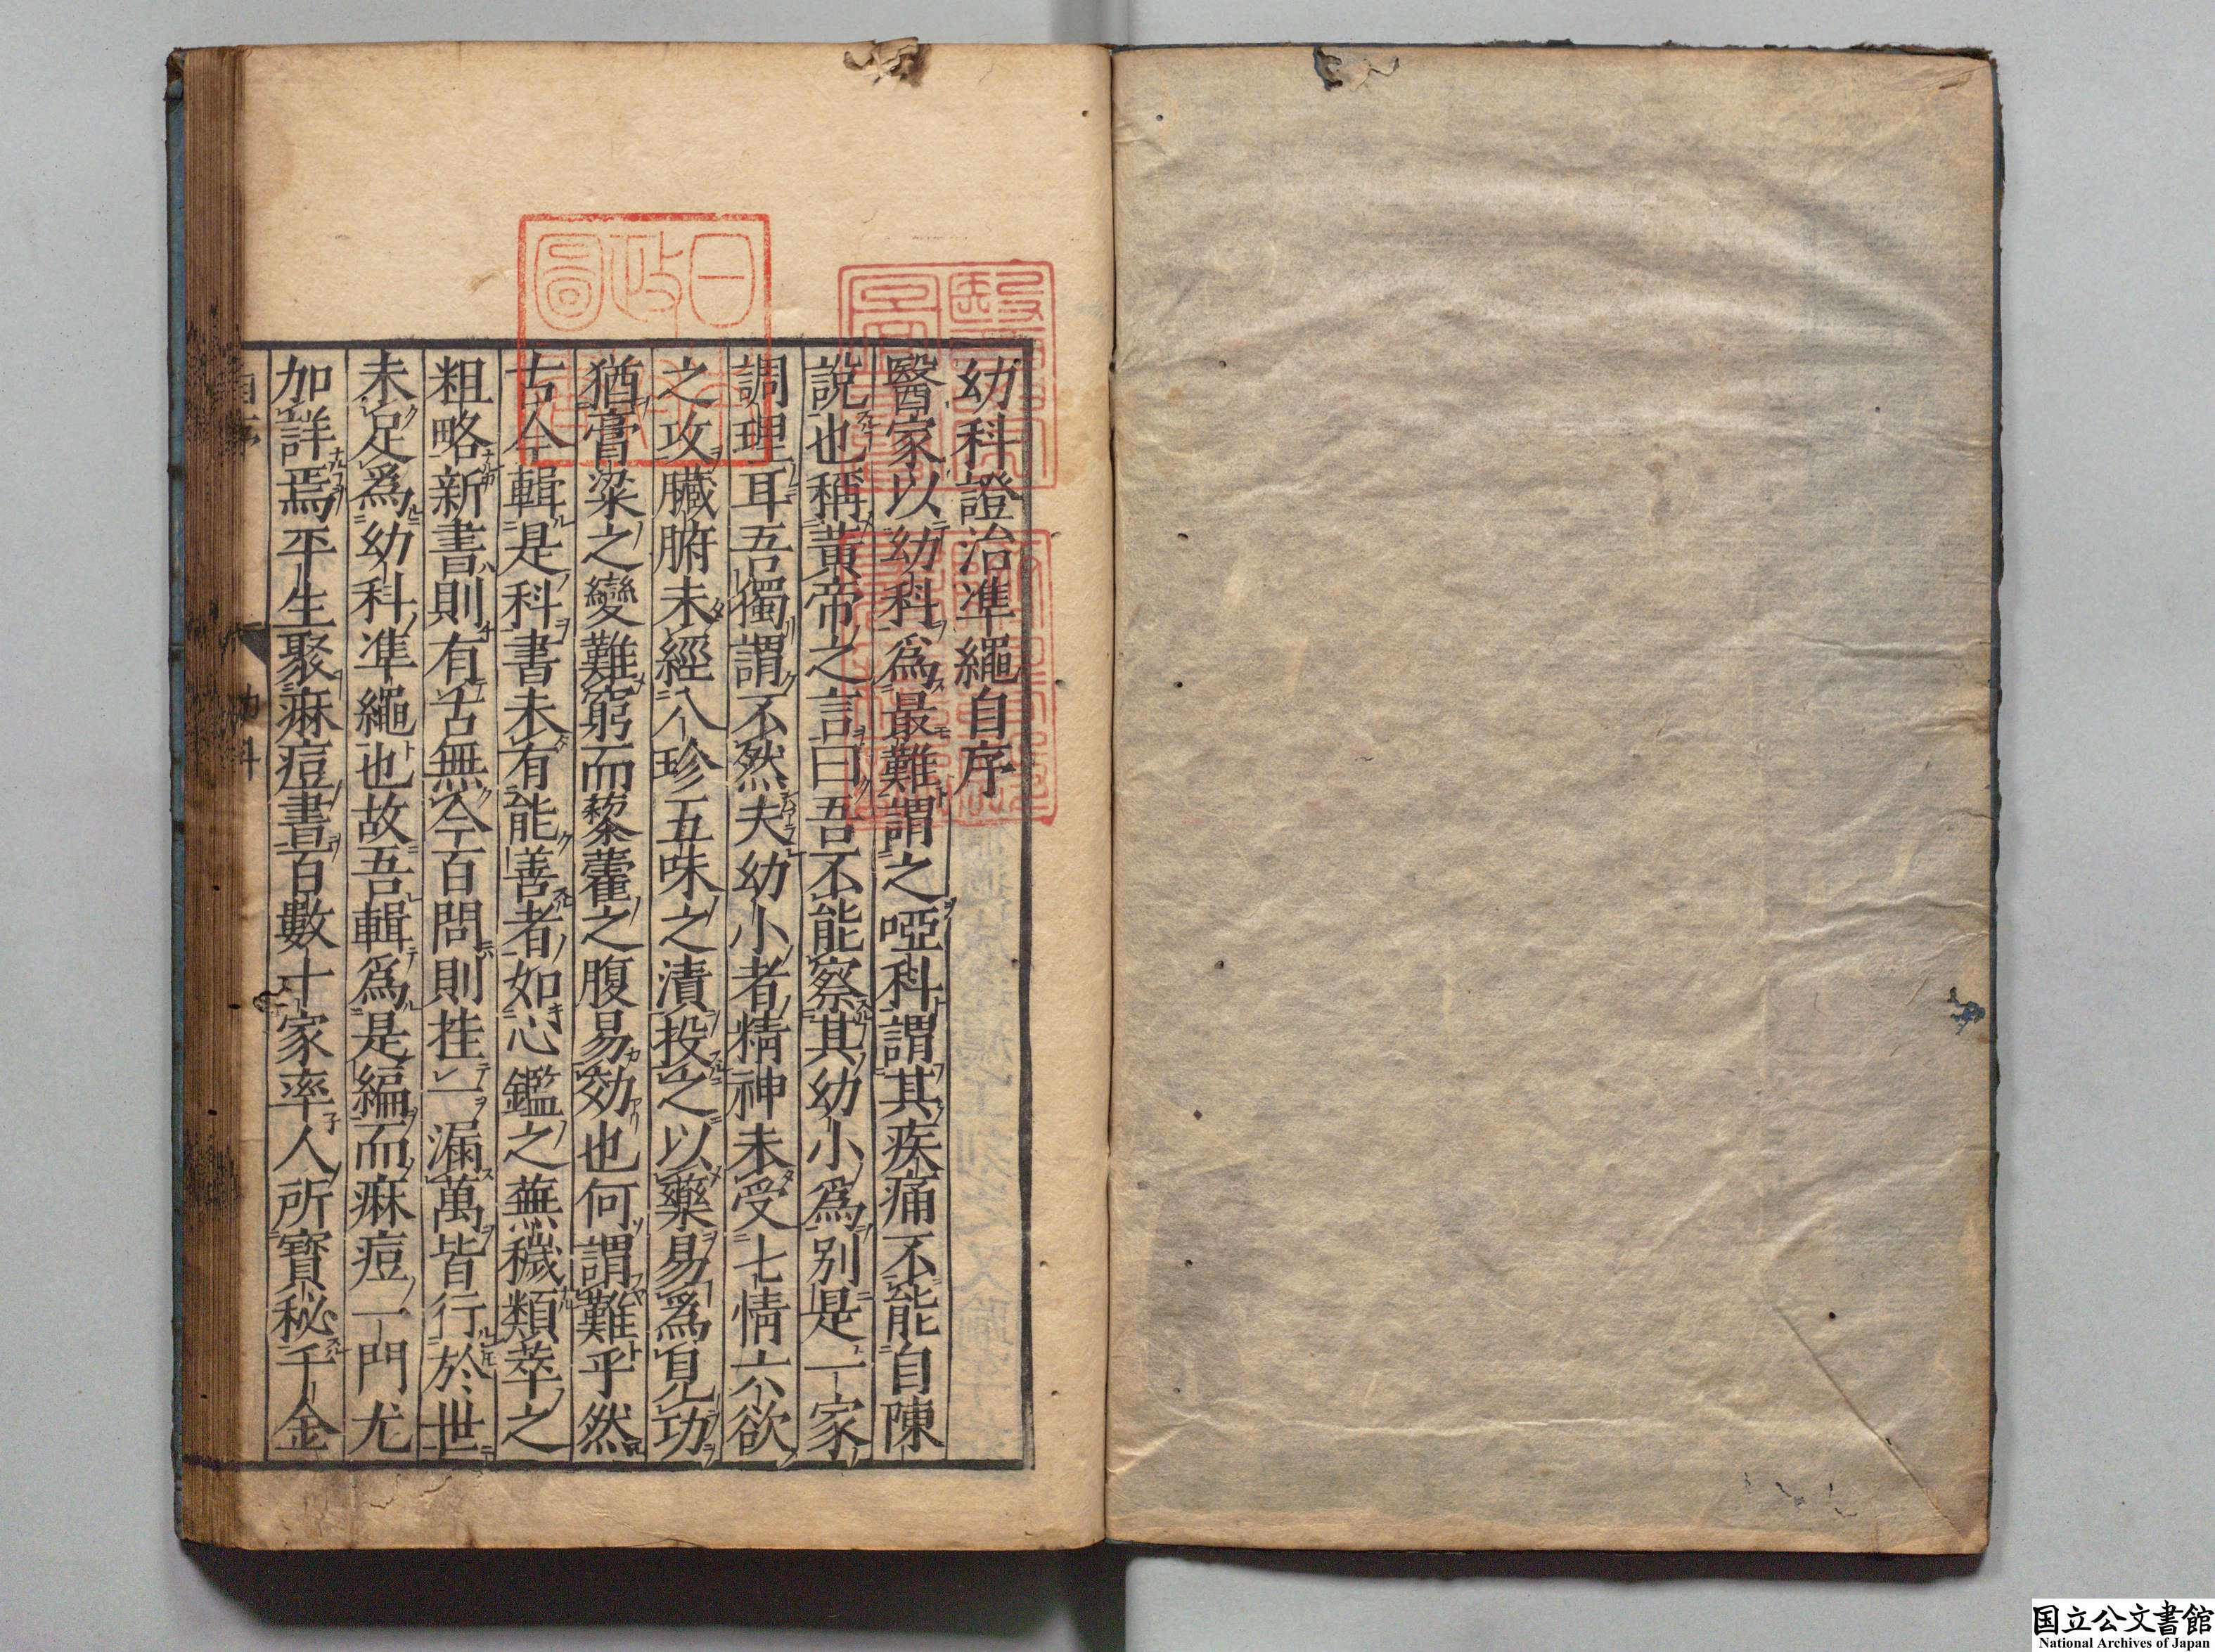 幼科證治準繩自序
醫家以幼科爲最難謂之啞科謂其疾痛不能自陳
說也稱黃帝之言曰吾不能察其幼小爲别是一家
調理耳吾獨謂不然夫幼小者精神未受七情六欲
之攻臟腑未經八珍五味之漬投之以藥易爲見功
猶膏粱之變難窮而藜藿之腹易効也何謂難乎然
古今輯是科書未有能善者如心鑑之蕪穢類萃之
粗略新書則有古無今百問則挂一漏萬皆行於世
未足爲幼科準繩也故吾輯爲是編而痳痘一門尤
加詳焉平生聚痳痘書百數十家率人所寶秘千金
国立公文書館
National Archives of Japan